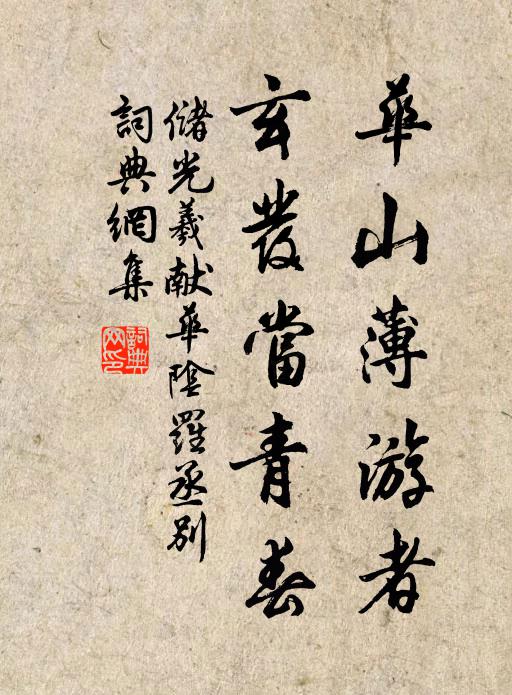 華山薄游者
玄發當青春
儲光羲獻華陰羅丞別
詞典網集
詞典網印